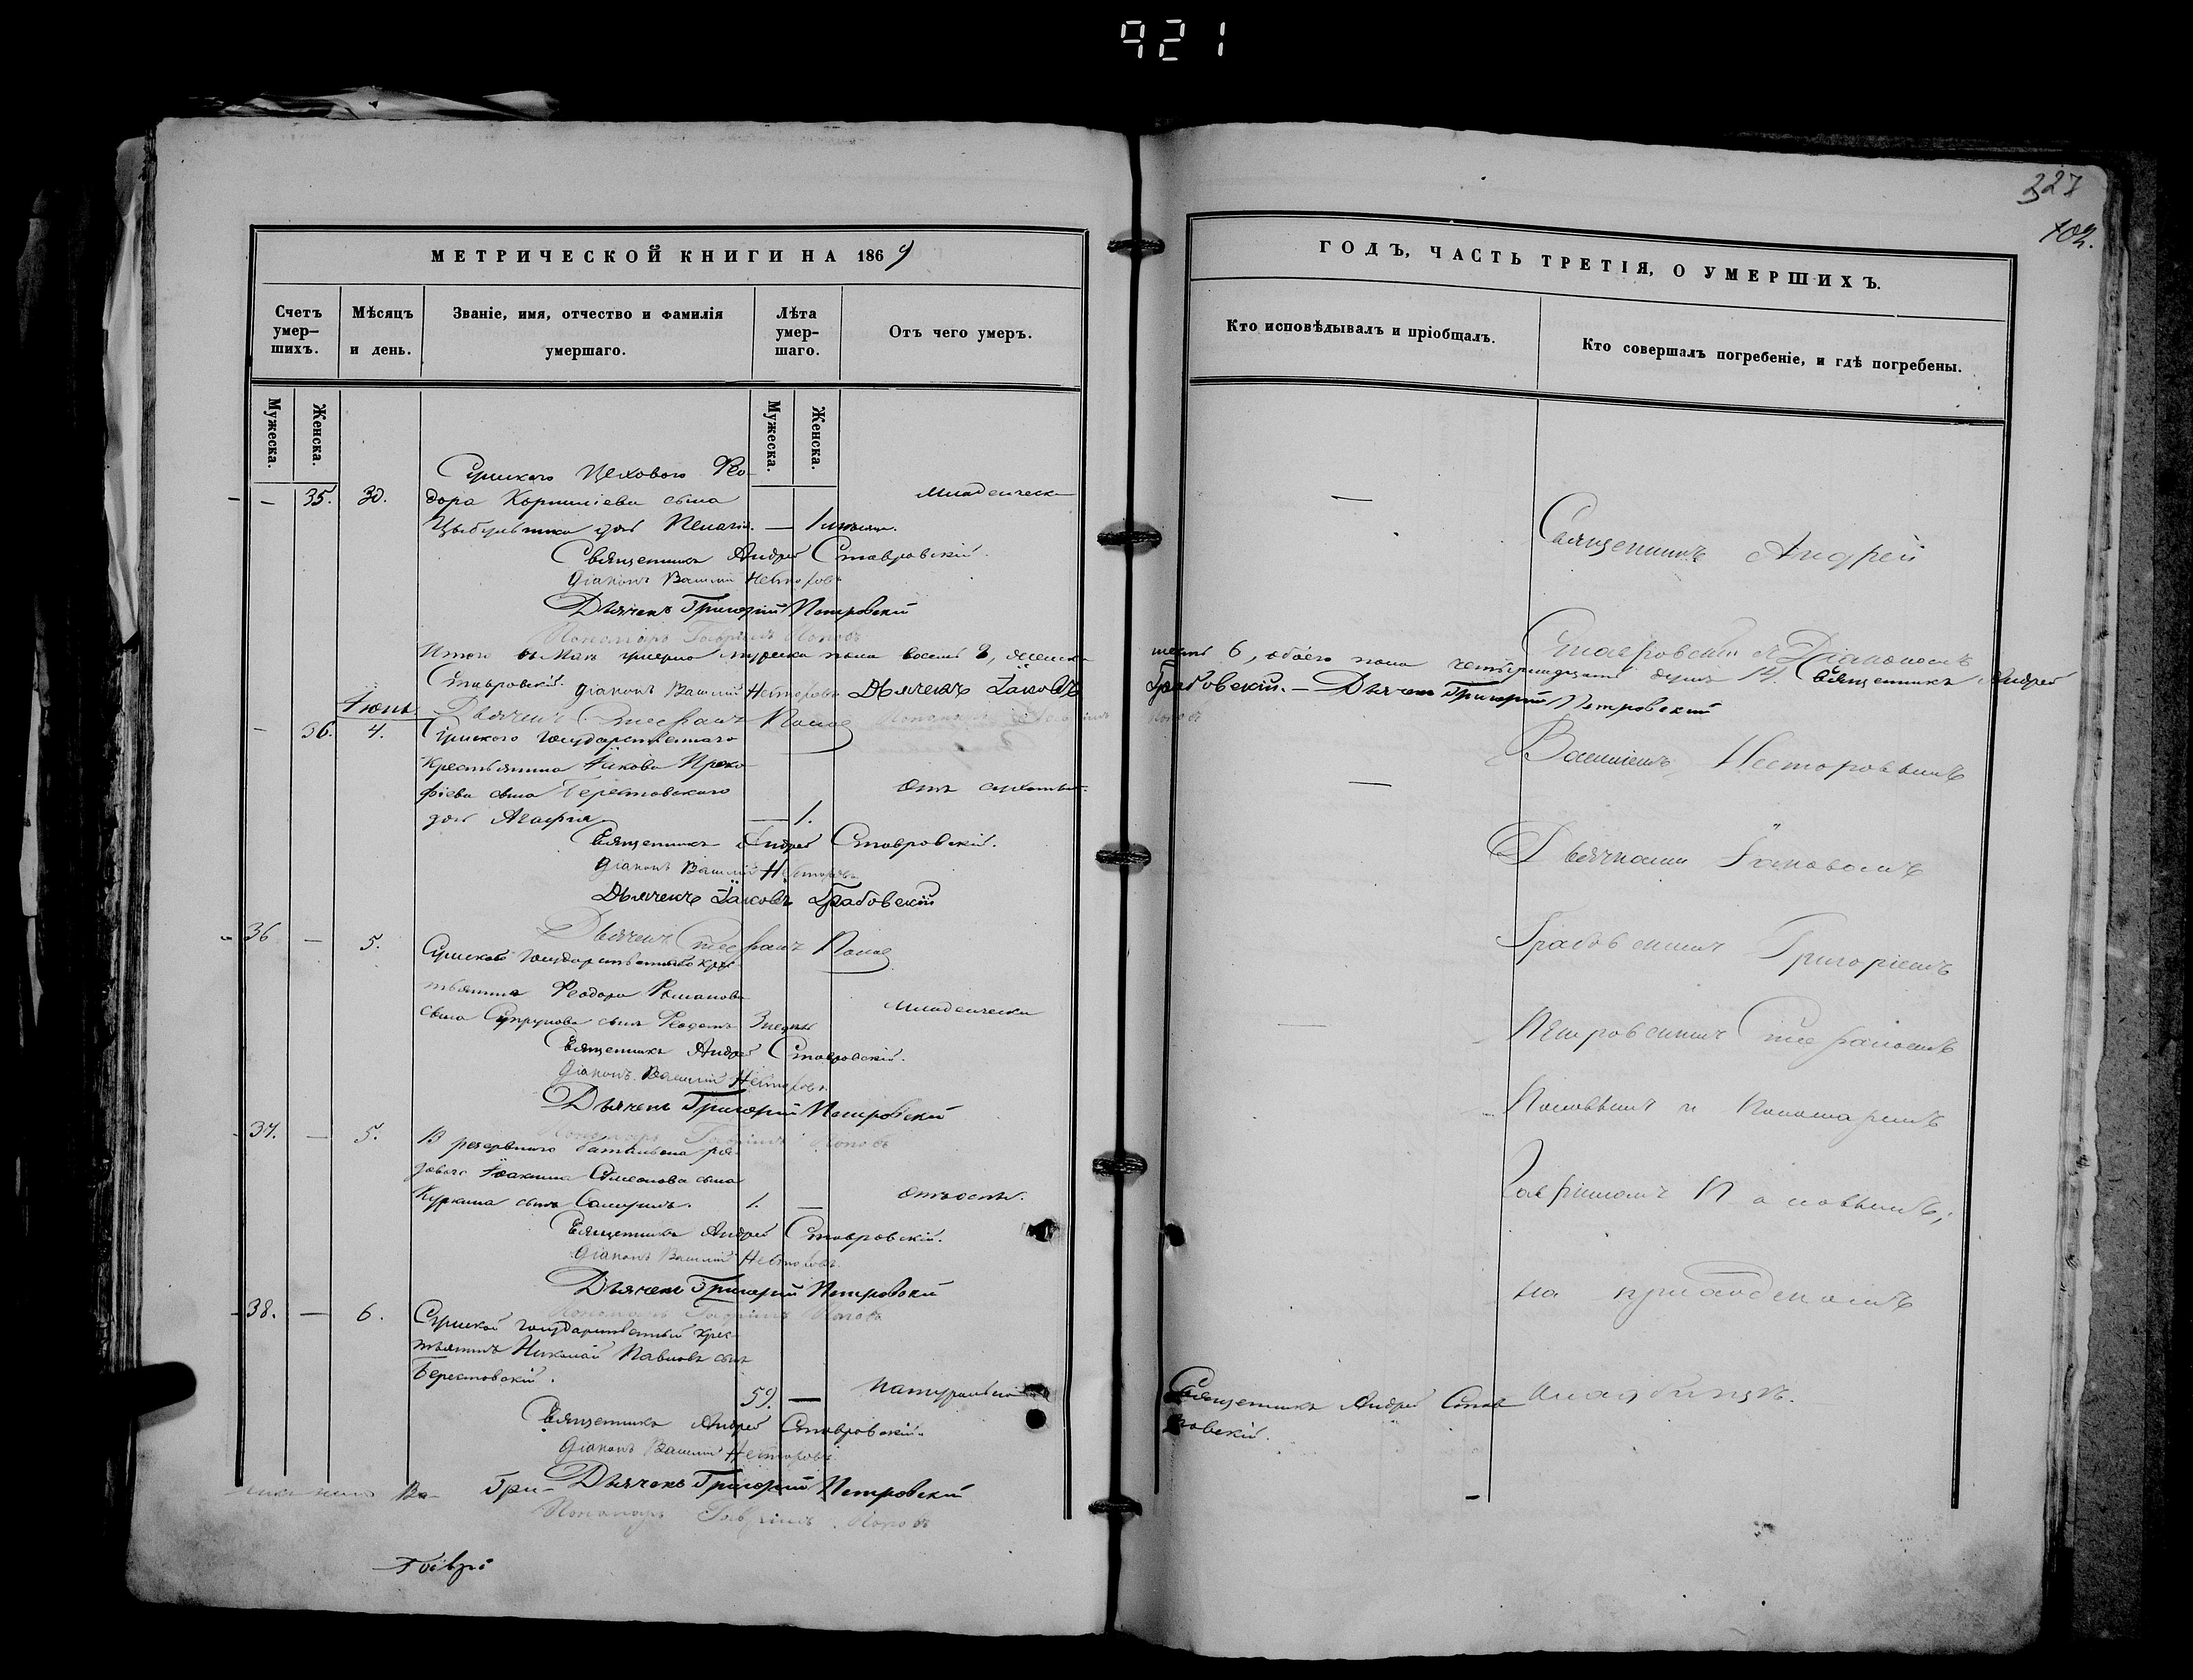 921
327
102.
МЕТРИЧЕСКОЙ КНИГИ НА 1869
Счетъ умер-
шихъ.
Мѣсяцъ
и день.
Званіе, имя, отчество и фамилія
умершаго.
Лѣта
умер-
шаго.
Отъ чего умеръ.
Мужеска.
Женска.
Мужеска.
Женска.
Сумскаго Цехового Ѳео-
— 35. 30. дора Корнилиева сына Младенческ
дочь Пелагія. — 1
Священникъ Андрей Ставровскій.
Діаконъ Василій Несторовъ
Дьячекъ Григорій Петровскій
Пономарь Гавріилъ Поповъ
Итого въ Маѣ умерло мужеска пола восемь 8, женска
Ставровскій. Діаконъ Василій Несторовъ Дьячекъ Іаковъ
Іюнь Дьячекъ Стефанъ Попов Пономарь Гавріилъ
— 36. 4. Сумского государственнаго
крестьянина Іакова Проко-
фіева сына Берестовского
дочь Агафія — 1.
Священникъ Андрей Ставровскій.
Діаконъ Василій Несторовъ
Дьячекъ Іаковъ Грабовскій
Дьячекъ Стефанъ Попов
36 — 5. Сумского государственного крес-
тьянина Ѳеодора Романова
сына Супрунова сынъ 3 недѣли Младенчески
Священникъ Андрей Ставровскій.
Діаконъ Василій Несторовъ.
Дьячекъ Григорій Петровскій
Пономарь Гавріилъ Поповъ
37. — 5. резервного баталіона ря-
дового Іоакима Симеонова сына
Куркина сынъ Самуилъ. 1. —
Священникъ Андрей Ставровскій.
Діаконъ Василій Несторовъ.
Дьячекъ Григорій Петровскій
Пономарь Гавріилъ Поповъ
38. — 6. Сумской государственный крес-
тьянинъ Николай Павловъ сынъ
Берестовскій. 59. — натурально
Священникъ Андрей Ставровскій.
Діаконъ Василій Несторовъ
Гри- Дьячекъ Григорій Петровскій
Пономарь Гавріилъ Поповъ
Гаврі
ГОДЪ, ЧАСТЬ ТРЕТІЯ, О УМЕРШИХЪ.
Кто исповѣдывалъ и пріобщалъ.
Кто совершалъ погребеніе, и гдѣ погребены.
Священникъ Андрей
Ставровскій съ Діакономъ
шесть 6, обоего пола четырнадцать душъ 14. Священникъ Андрей
Грабовскій. — Дьячекъ Григорій Петровскій
Поповъ
Василіемъ Несторовымъ
Дьячками Іаковомъ
Грабовскимъ Григоріемъ
Петровскимъ Стефаномъ
Поповымъ и Пономаремъ
Гавріиломъ Поповымъ;
на приходскомъ
кладбищѣ.
Священникъ Андрей Став-
ровскій.